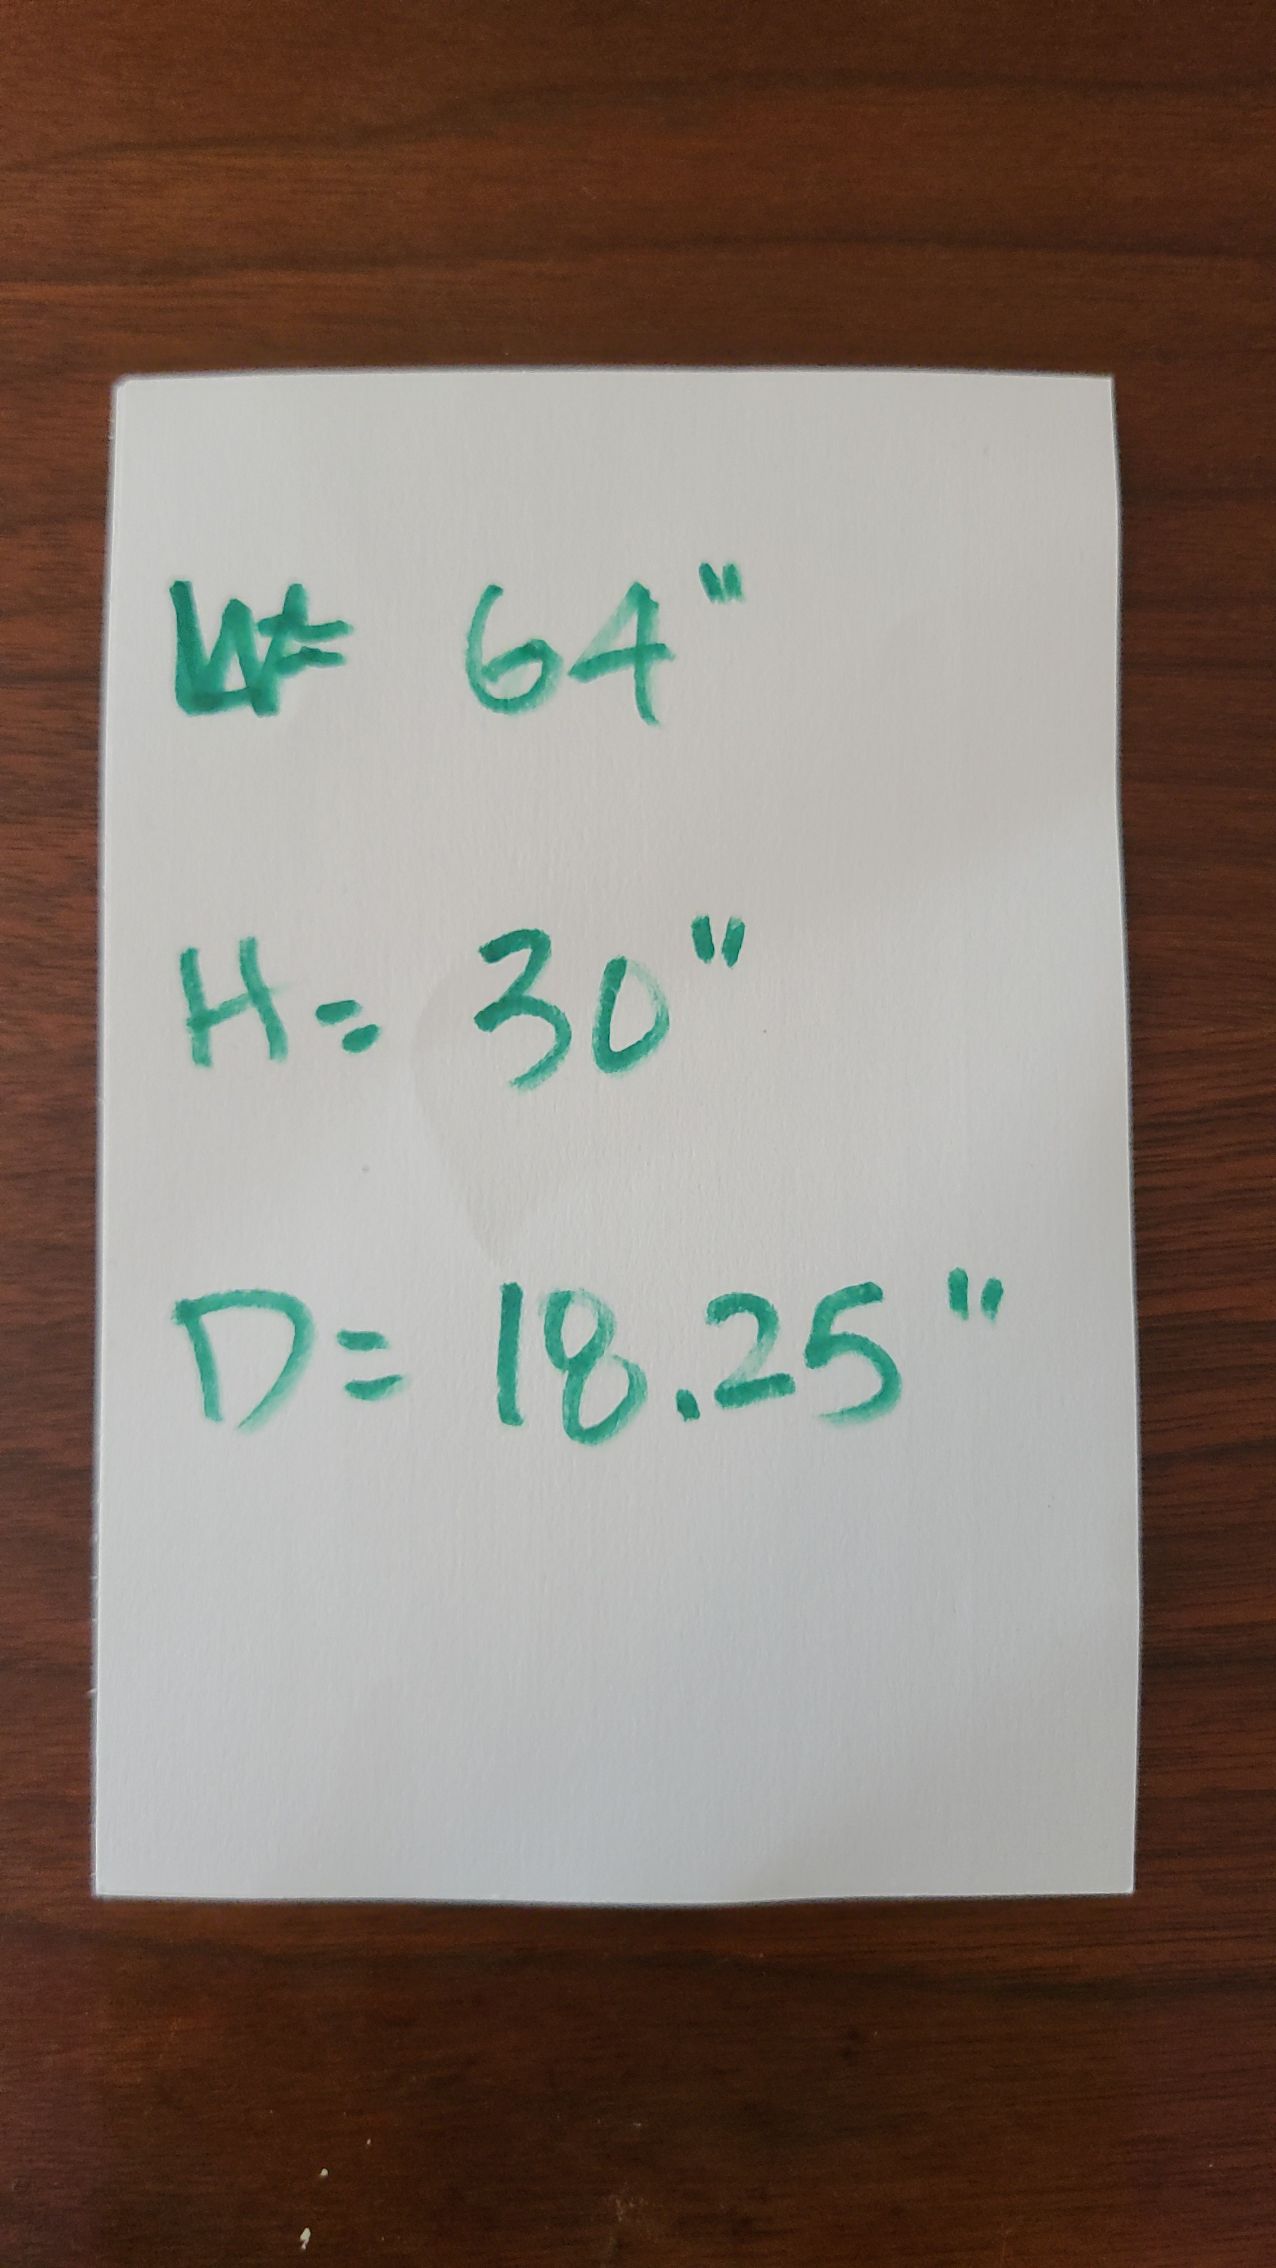 W= 64"
H= 30"
D= 18.25"